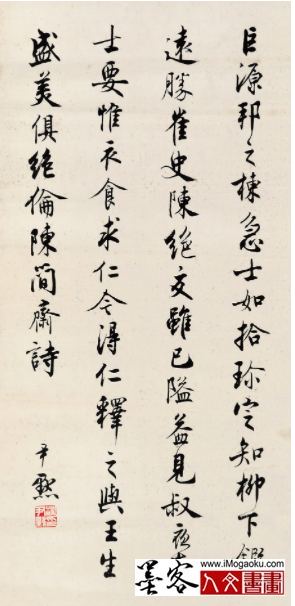 巨源邦之棟急士如拾珍定知柳下鑑
遠勝崔史陳絕交雖已隘益見叔夜
士要惟衣食求仁今得仁釋之與王生
盛美俱絕倫陳簡齋詩
尹默
墨客
www.iMogaoku.com
人文書畫